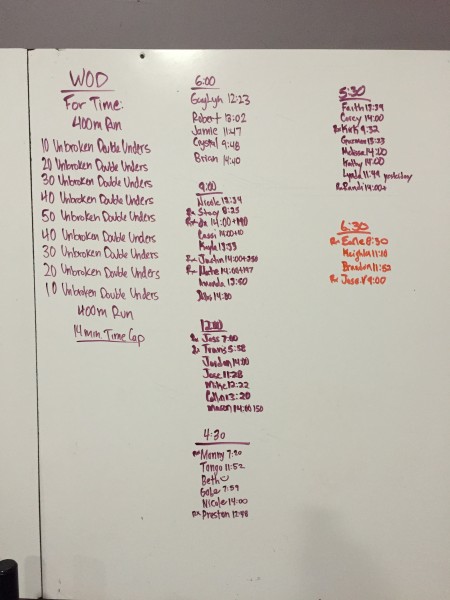 WOD
For Time:
400m Run
10 Unbroken Double Unders
20 Unbroken Double Unders
30 Unbroken Double Unders
40 Unbroken Double Unders
50 Unbroken Double Unders
40 Unbroken Double Unders
30 Unbroken Double Unders
20 Unbroken Double Unders
10 Unbroken Double Unders
400m Run
14 min Time Cap
6:00
GayLyn 12:23
Robert 13:02
Jamie 11:47
Crystal 9:48
Brian 14:40
9:00
Nicole 12:34
Rx Stacy 8:25
14:00+190
Cassi 14:00+10
Kayla 13:53
Rx Justin 14:00+250
Rx Nate 14:00+147
Amanda 13:50
14:30
12:00
Rx Jess 7:00
Travis 5:58
Jordan 14:00
Jose 11:28
Mike 12:22
Collin 13:20
Mason 14:00 150
4:30
Rx Manny 7:20
Tango 11:52
Beth
Gabe 7:59
Nicole 14:00
Rx Preston 12:48
5:30
Faith 13:39
Corey 14:00
Rx Kirk 9:32
13:23
Melissa 14:00
Kelly 14:00
Lynda 11:49 yesterday
Rx Randi 14:00+
6:30
Rx Earle 8:30
Meighla 11:10
Brandon 11:52
Rx Jose V 9:00